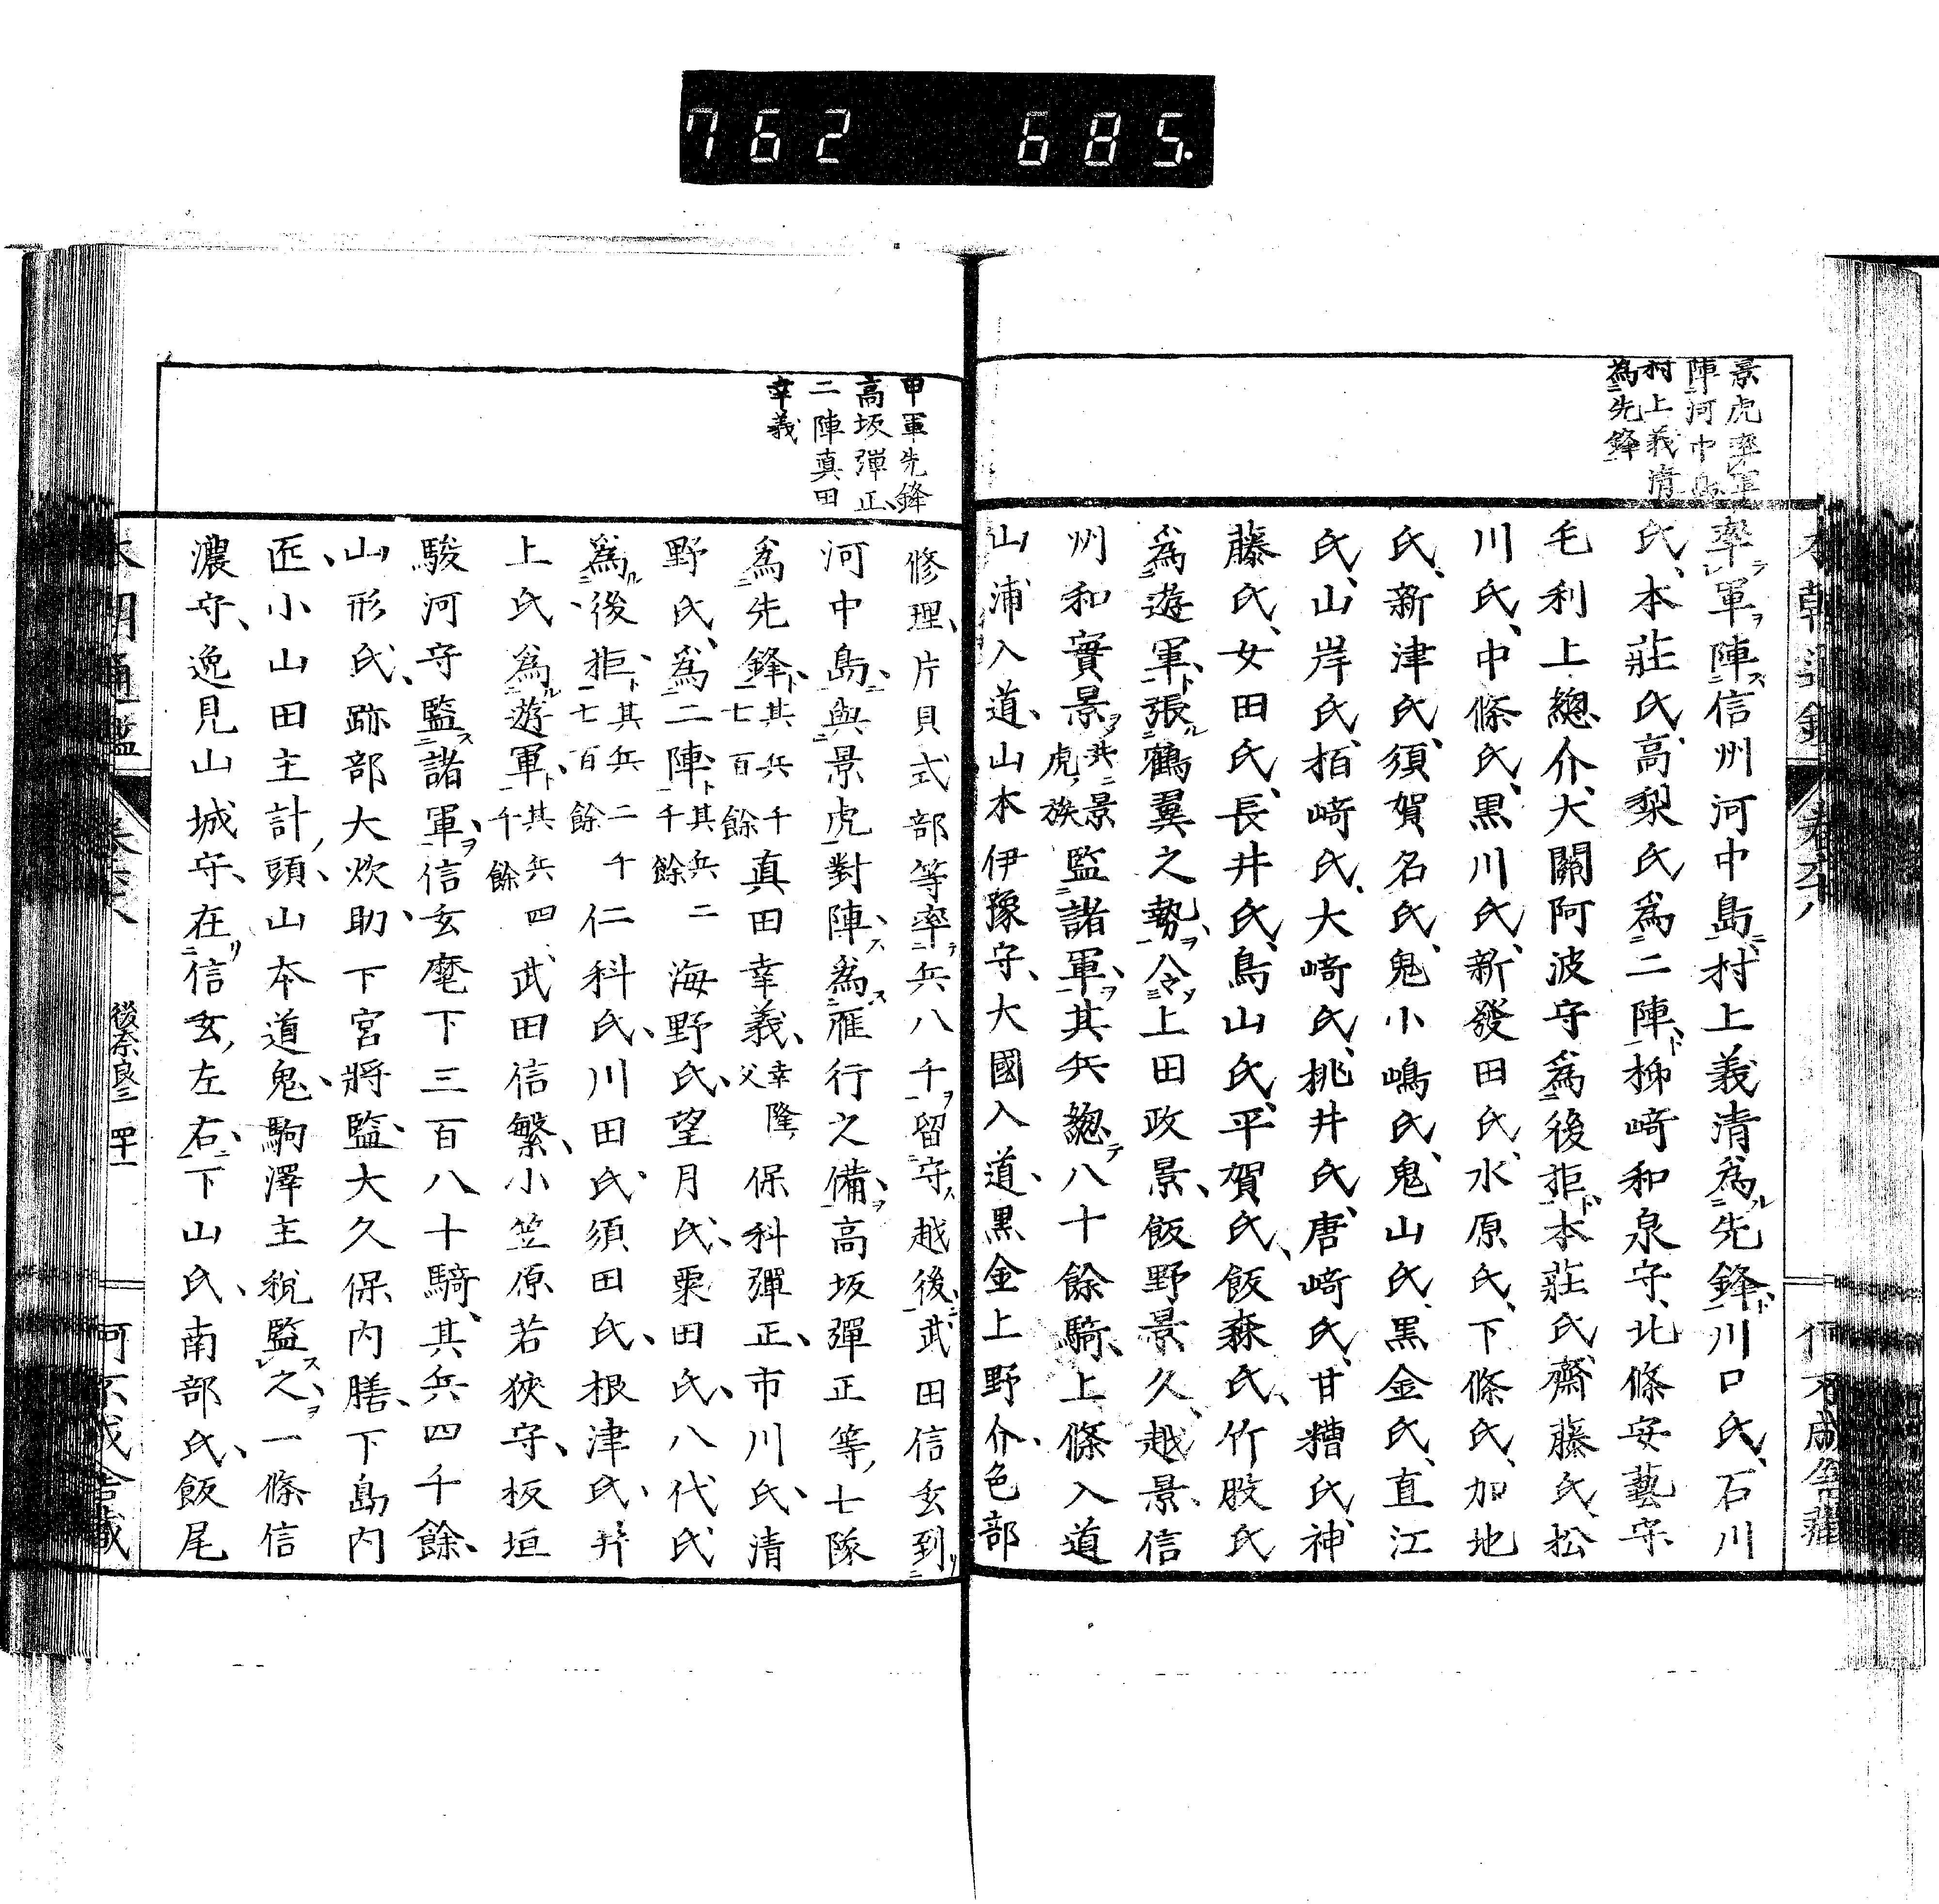 762 685.
景虎率軍
陣河中島
村上義清
為先鋒
率軍陣信州河中島村上義清為先鋒川口氏石川
氏本莊氏高梨氏為二陣柳﨑和泉守北條安藝守
毛利上總介大關阿波守為後拒本莊氏齋藤氏松
川氏中條氏黒川氏新發田氏水原氏下條氏加地
氏新津氏須賀名氏鬼小嶋氏鬼山氏黒金氏直江
氏山岸氏栢﨑氏大﨑氏桃井氏唐﨑氏甘糟氏神
藤氏女田氏長井氏鳥山氏平賀氏飯森氏竹股氏
為遊軍張鶴翼之勢令上田政景飯野景久越景信
州和實景共景虎族監諸軍其兵總八十餘騎上條入道
山浦入道山本伊豫守大國入道黒金上野介色部
甲軍先鋒
高坂彈正
二陣真田
幸義
修理片貝式部等率兵八千留守越後武田信玄到
河中島與景虎對陣為雁行之備高坂彈正等七隊
為先鋒其兵千七百餘真田幸義幸隆父保科彈正市川氏清
野氏為二陣其兵二千餘海野氏望月氏栗田氏八代氏
為後拒其兵二千七百餘仁科氏川田氏須田氏根津氏井
上氏為遊軍其兵四千餘武田信繁小笠原若狹守板垣
駿河守監諸軍信玄麾下三百八十騎其兵四千餘
山形氏跡部大炊助下宮將監大久保内膳下島内
匠小山田主計頭山本道鬼駒澤主税監之一條信
濃守逸見山城守在信玄左右下山氏南部氏飯尾
後奈良三 四十一